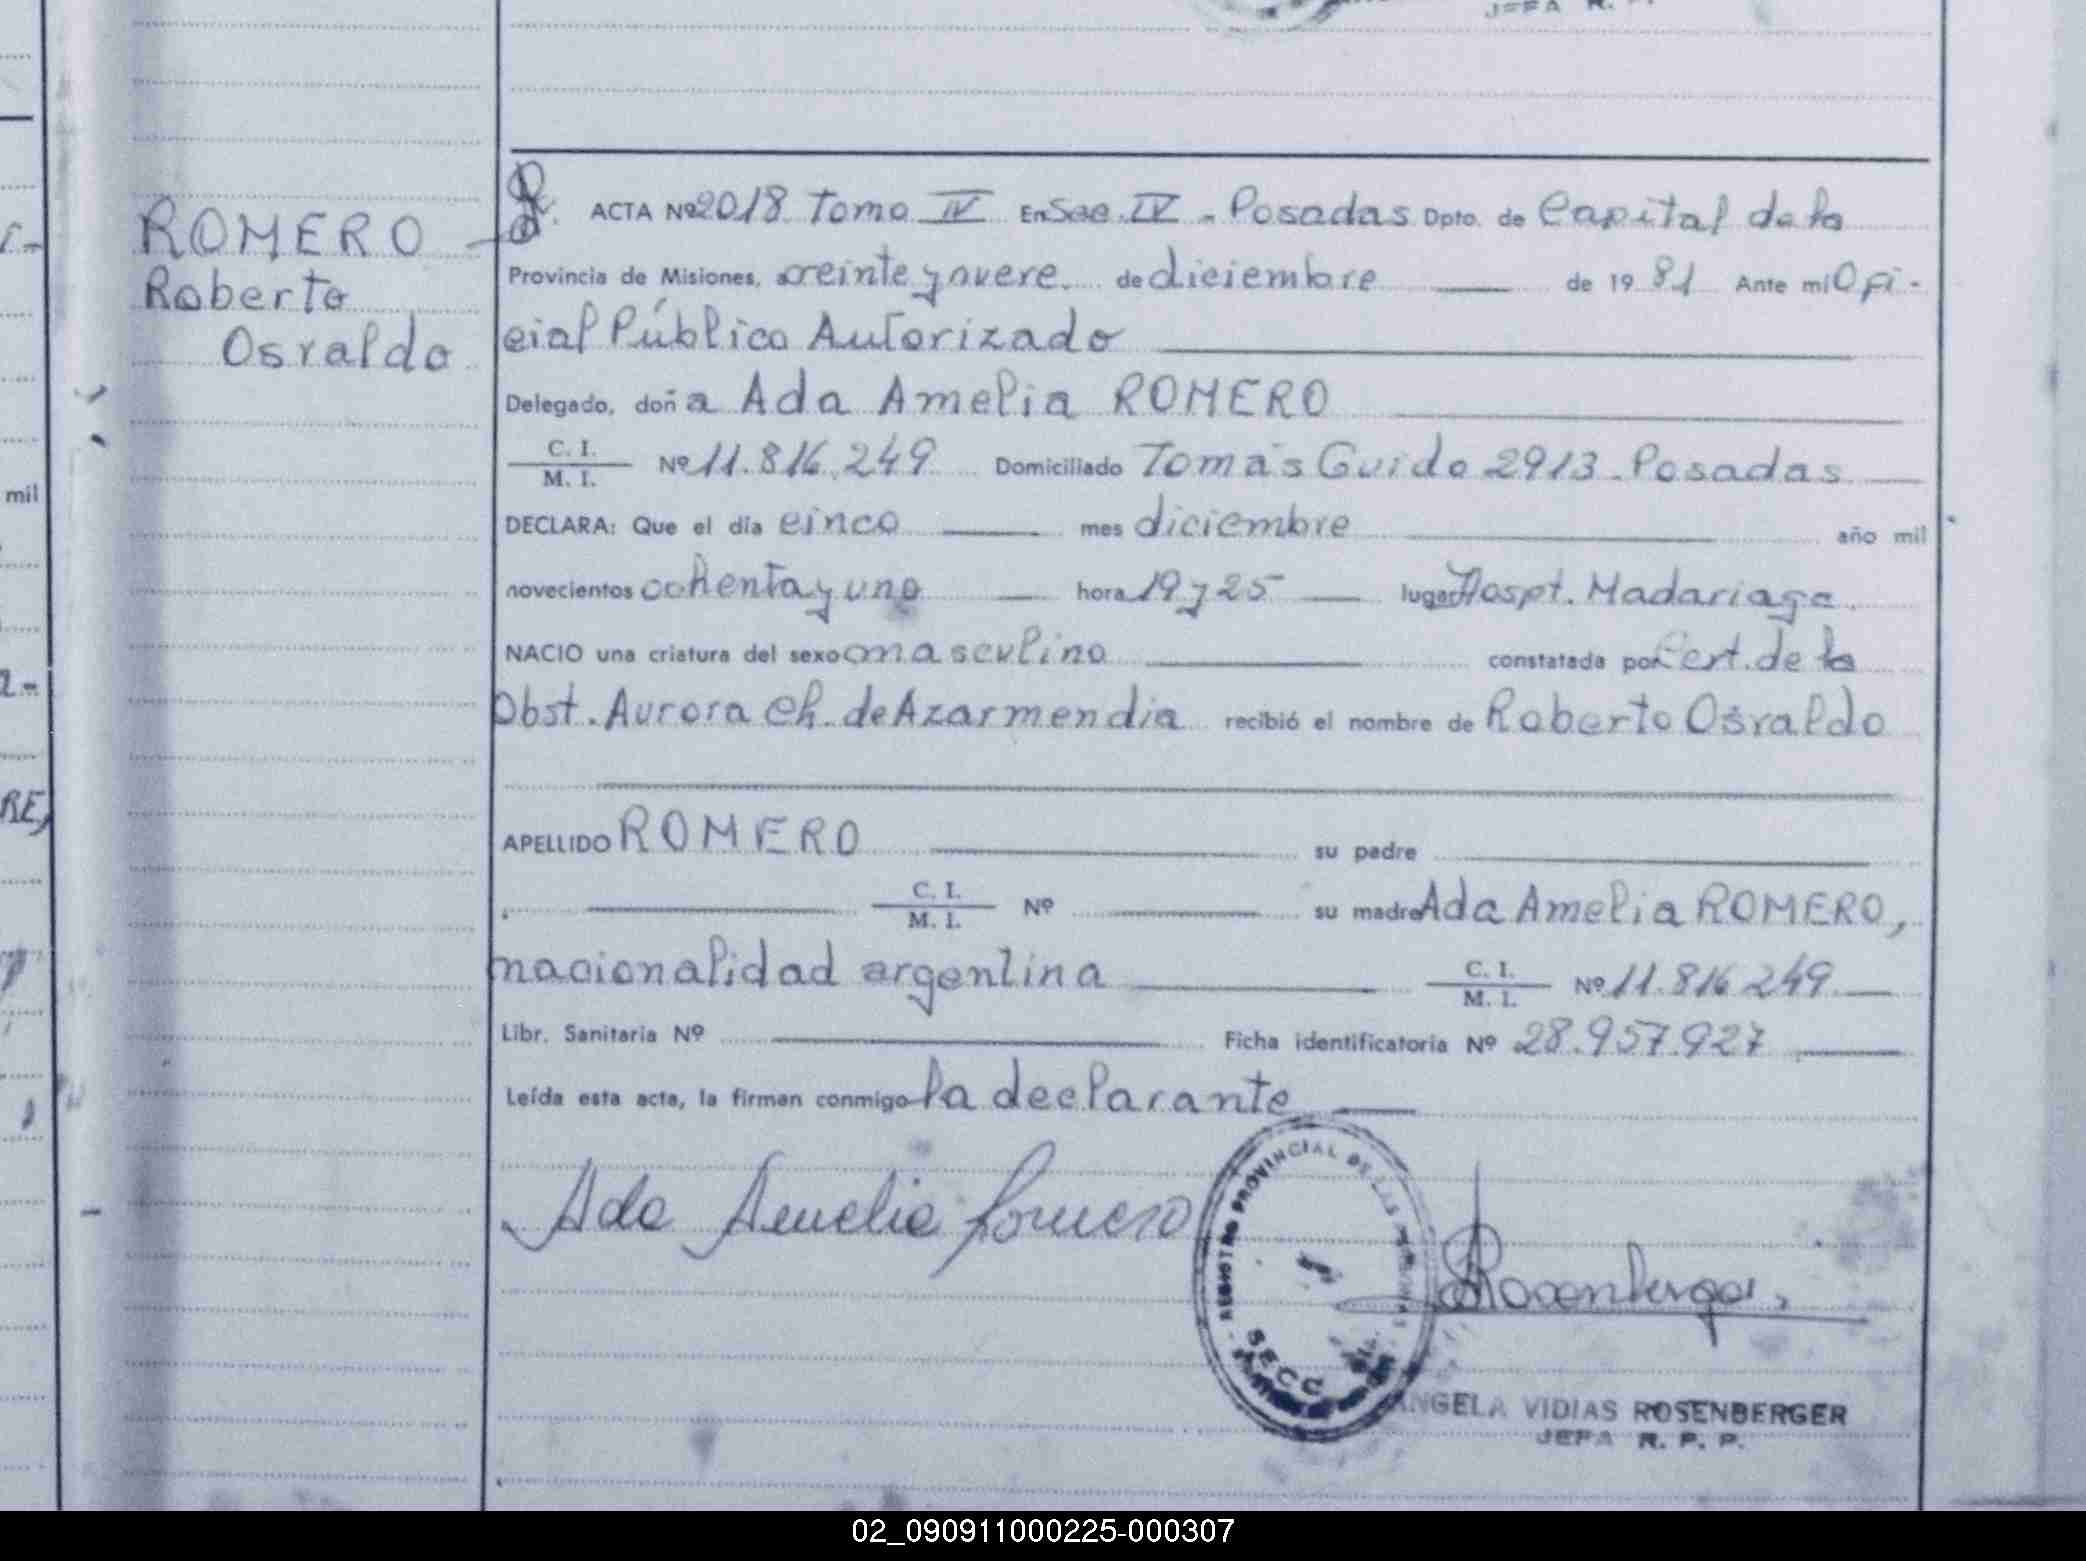 JEFA R. P.
ROMERO
Roberto
Osvaldo
ACTA Nº 2018 Tomo IV En Sec. IV - Posadas Dpto. de Capital de la
Provincia de Misiones, a veinte y nueve de diciembre de 1981 Ante mi Ofi-
cial Público Autorizado
Delegado, doña Ada Amelia ROMERO
C. I.
M. I. Nº 11.816.249 Domiciliado Tomás Guido 2913 - Posadas
DECLARA: Que el día cinco mes diciembre año mil
novecientos ochenta y uno hora 19 y 25 lugar Hospt. Madariaga.
NACIO una criatura del sexo masculino constatada por Cert. de la
Obst. Aurora Ch. de Azarmendia recibió el nombre de Roberto Osvaldo
APELLIDO ROMERO su padre
C. I.
M. I. Nº su madre Ada Amelia ROMERO,
nacionalidad argentina C. I.
M. I. Nº 11.816.249
Libr. Sanitaria Nº Ficha identificatoria Nº 28.957.927
Leída esta acta, la firman conmigo la declarante
Ada Amelia Romero
REGISTRO PROVINCIAL DE LAS PERSONAS
SECC.
Rosenberger
ANGELA VIDIAS ROSENBERGER
JEFA R. P. P.
mil
RE,
02_090911000225-000307